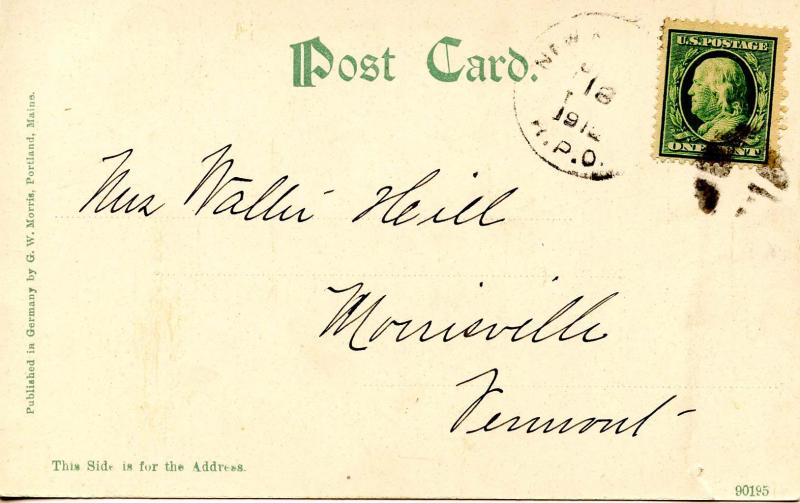 Post Card.
NEW
18
1912
R.P.O.
U.S. POSTAGE
ONE CENT
Mrs Walter Hill
Morrisville
Vermont
Published in Germany by G. W. Morris, Portland, Maine.
This Side is for the Address.
90195